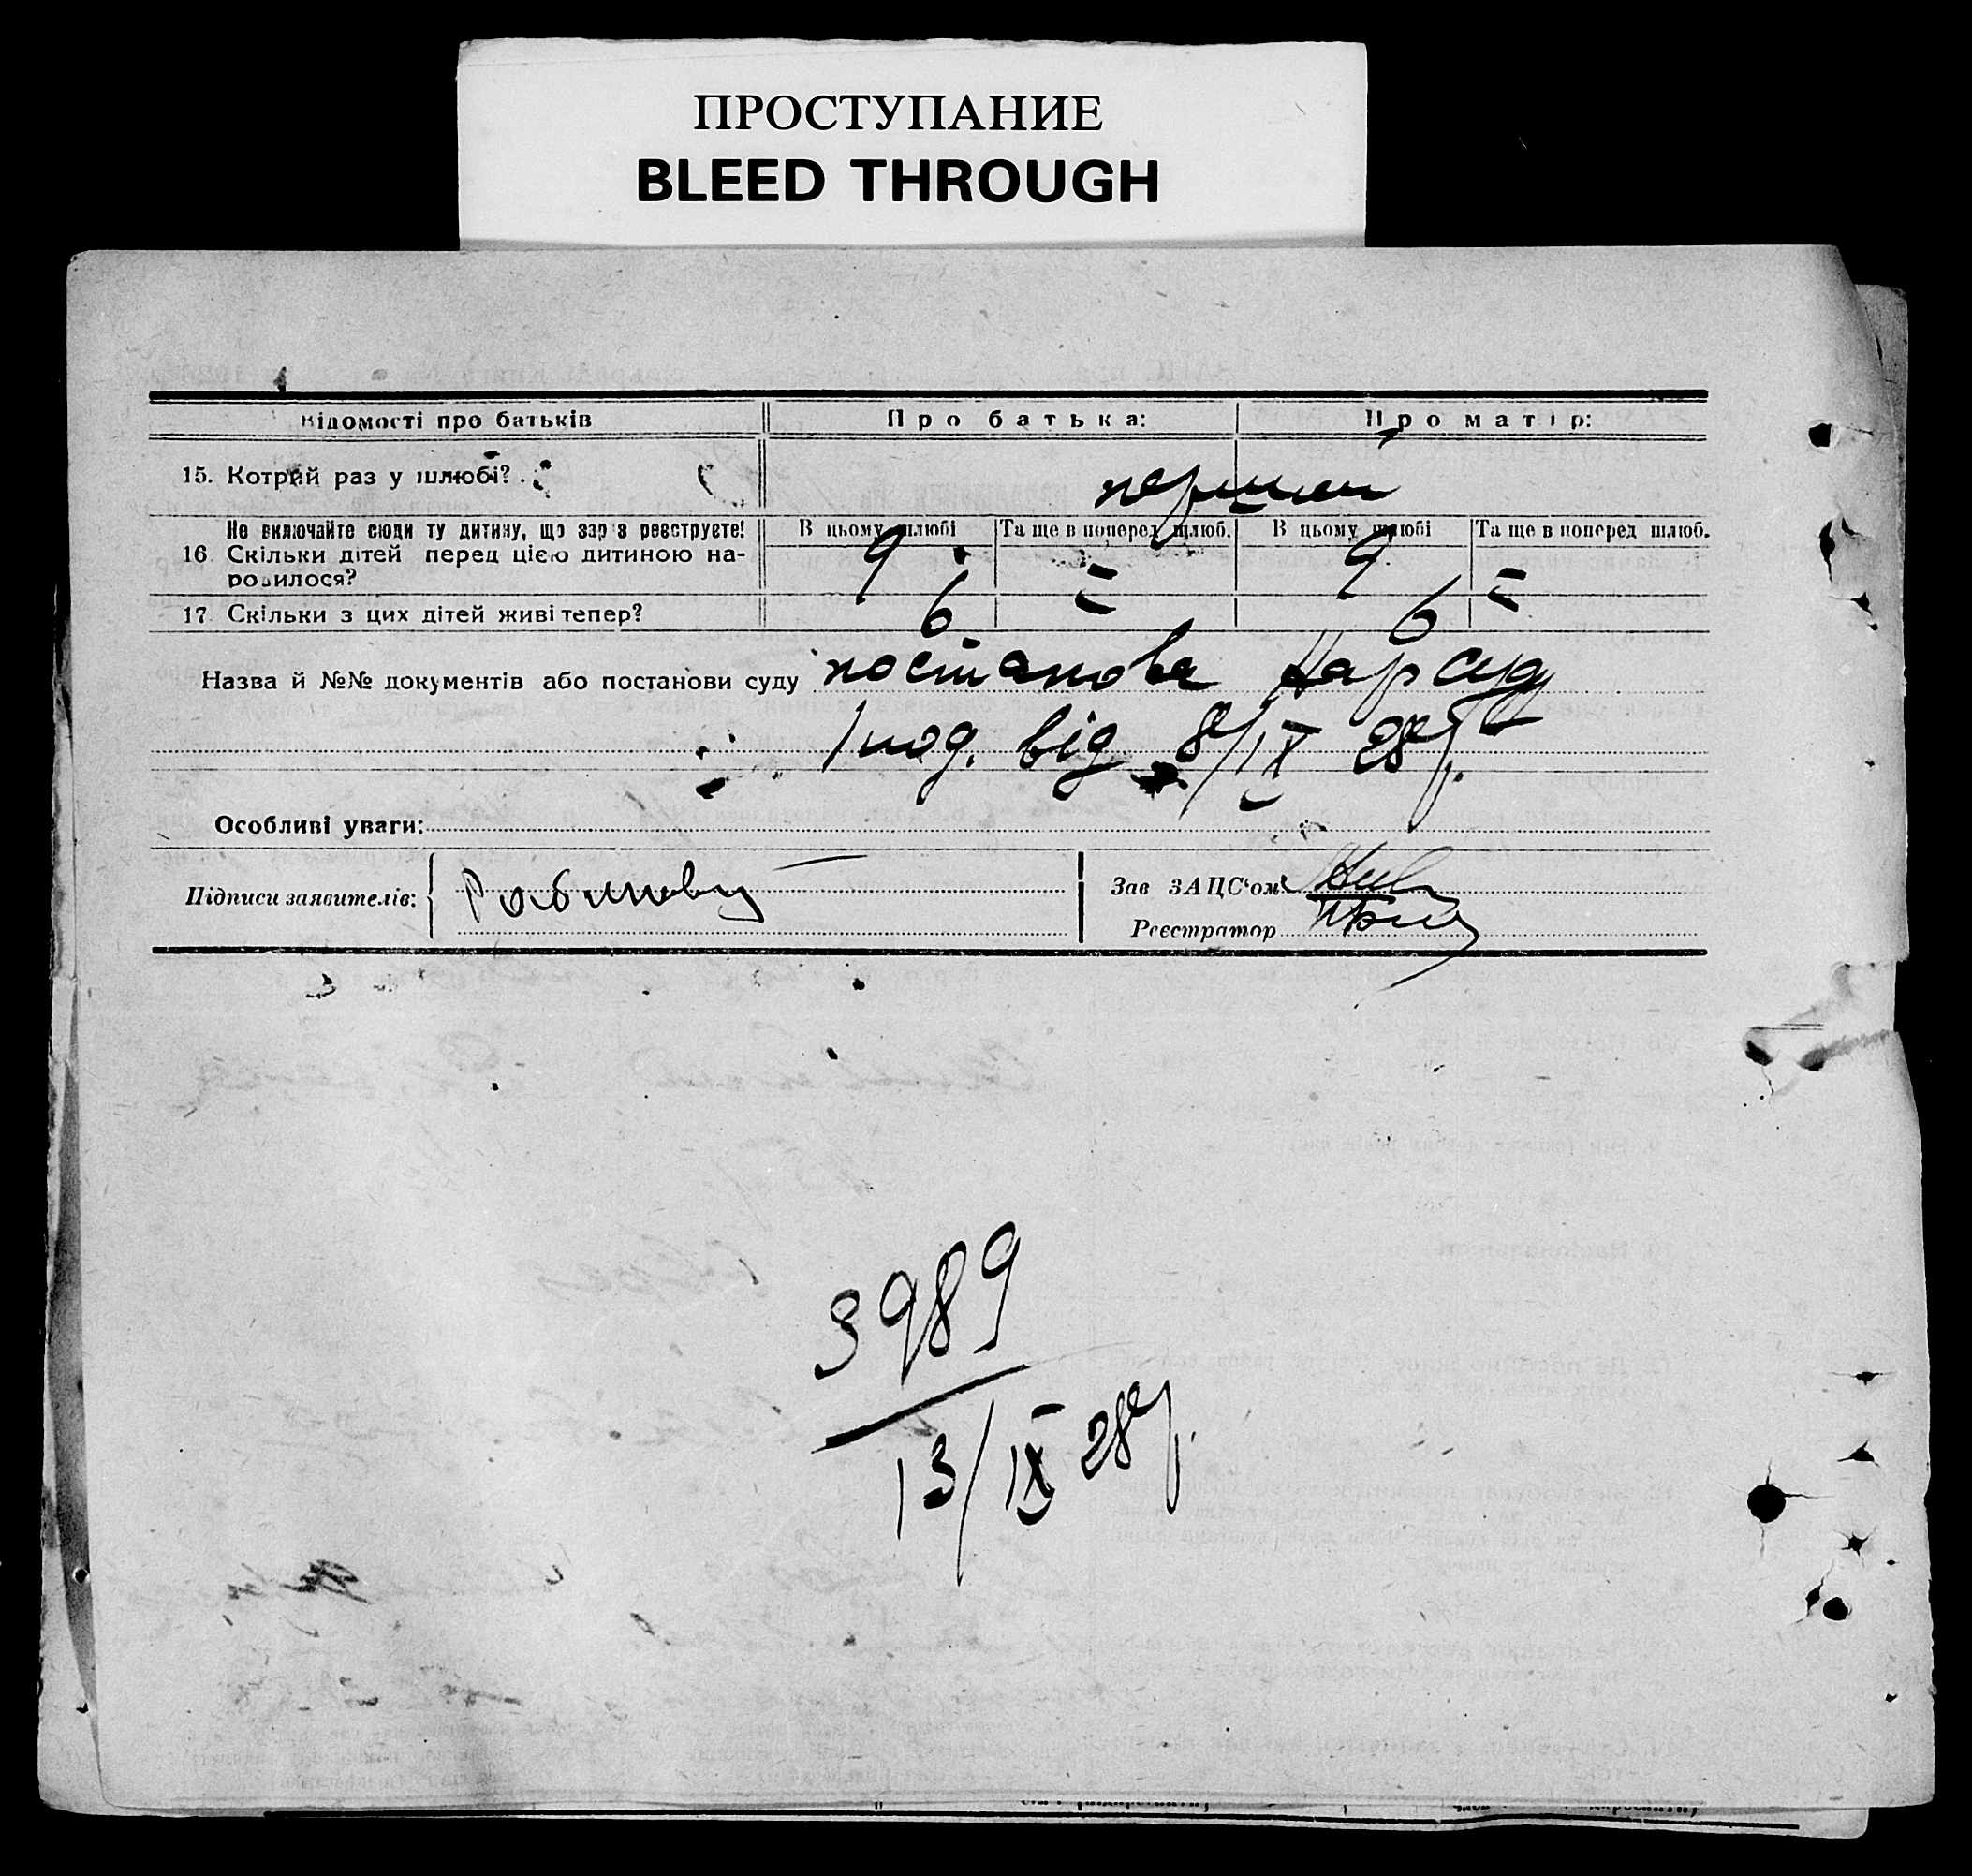 ПРОСТУПАНИЕ
BLEED THROUGH
Відомості про батьків Про батька: Про матір:
15. Котрий раз у шлюбі? перший
Не включайте сюди ту дитину, що зараз реєструєте! В цьому шлюбі Та ще в поперед шлюб. В цьому шлюбі Та ще в поперед шлюб.
16. Скільки дітей перед цією дитиною на- 9 = 9 =
родилося?
17. Скільки з цих дітей живі тепер? 6 6
Назва й №№ документів або постанови суду постанова Нарсуду
від 8/IX 28 р.
Особливі уваги:
Підписи заявителів:
Зав ЗАЦС'ом
Реєстратор
3989
13/IX 28 р.